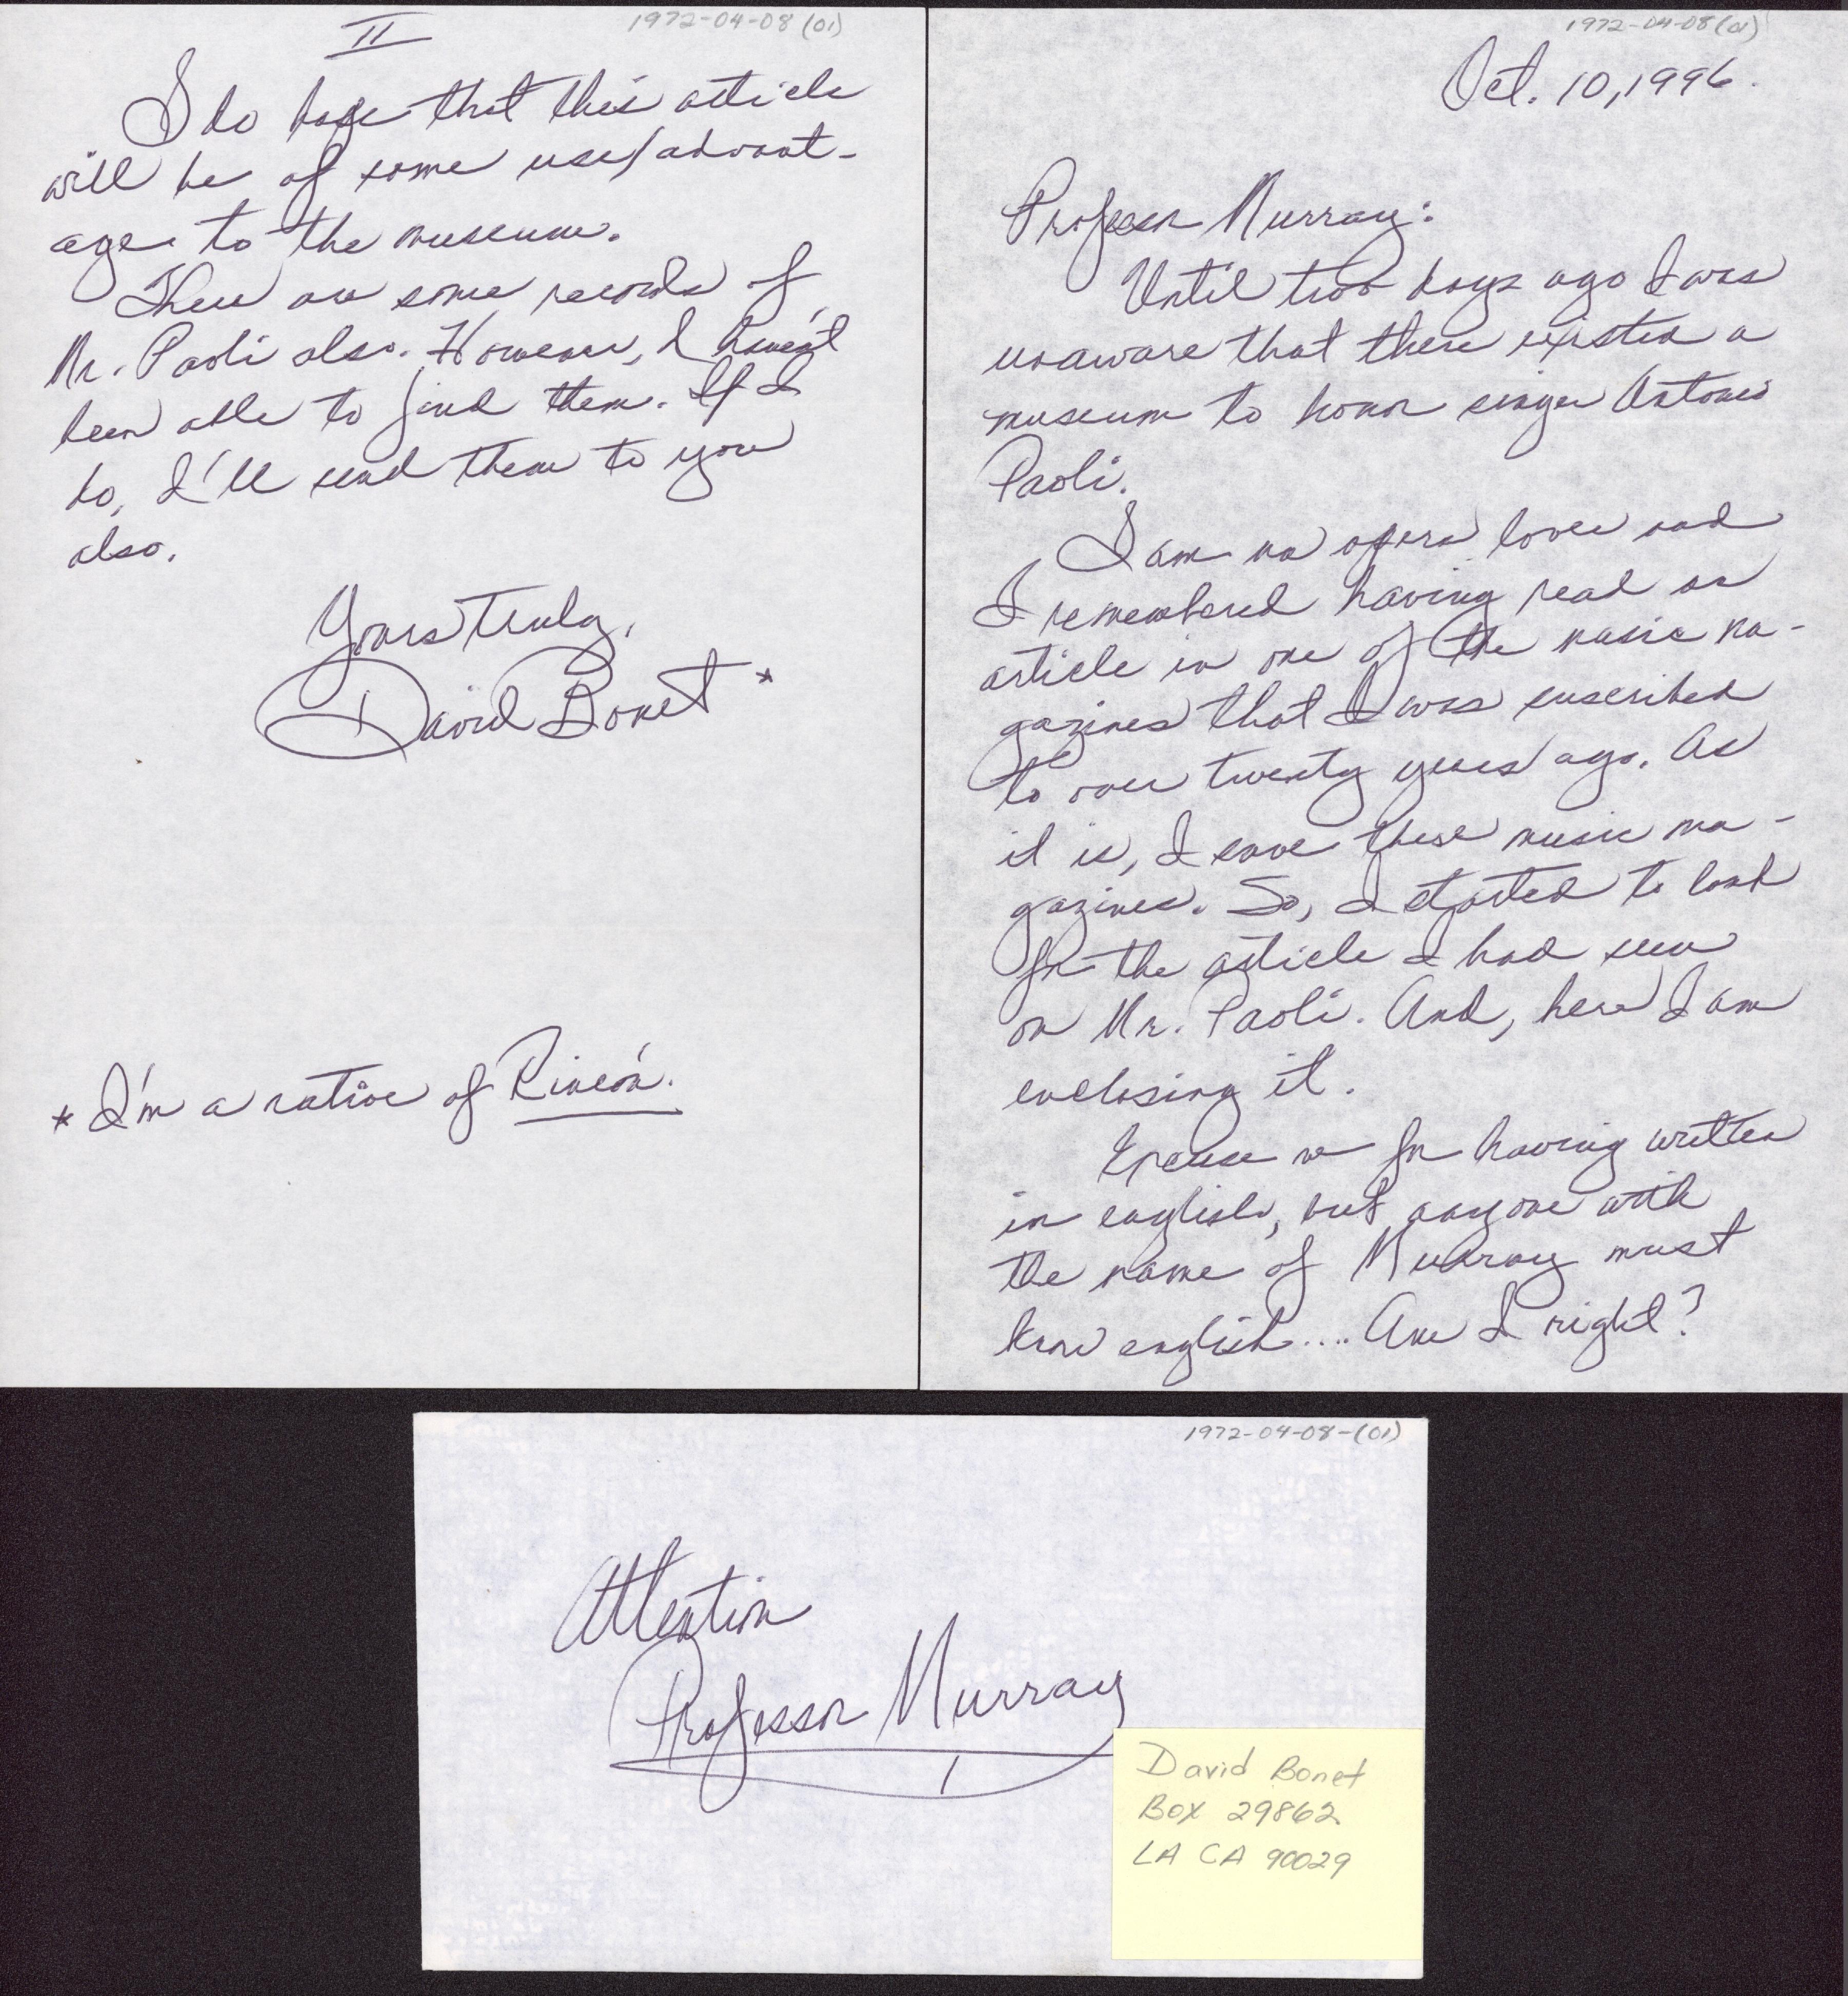 1972-04-08(01)
Oct. 10, 1996.
Professor Murray:
Until two days ago I was
unaware that there existed a
museum to honor singer Antonio
Paoli.
I am an opera lover and
I remembered having read an
article in one of the music ma-
gazines that I was suscribed
to over twenty years ago. As
it is, I save these music ma-
gazines. So, I started to look
for the article I had seen
on Mr. Paoli. And, here I am
enclosing it.
Excuse me for having written
in english, but anyone with
the name of Murray must
know english.... Am I right?
1972-04-08(01)
II
I do hope that this article
will be of some use/advant-
age to the museum.
There are some records of
Mr. Paoli also. However, I haven't
been able to find them. If I
do, I'll send them to you
also.
Yours truly,
David Bonet *
* I'm a native of Rincón.
1972-04-08-(01)
Attention
Professor Murray
David Bonet
Box 29862
LA CA 90029